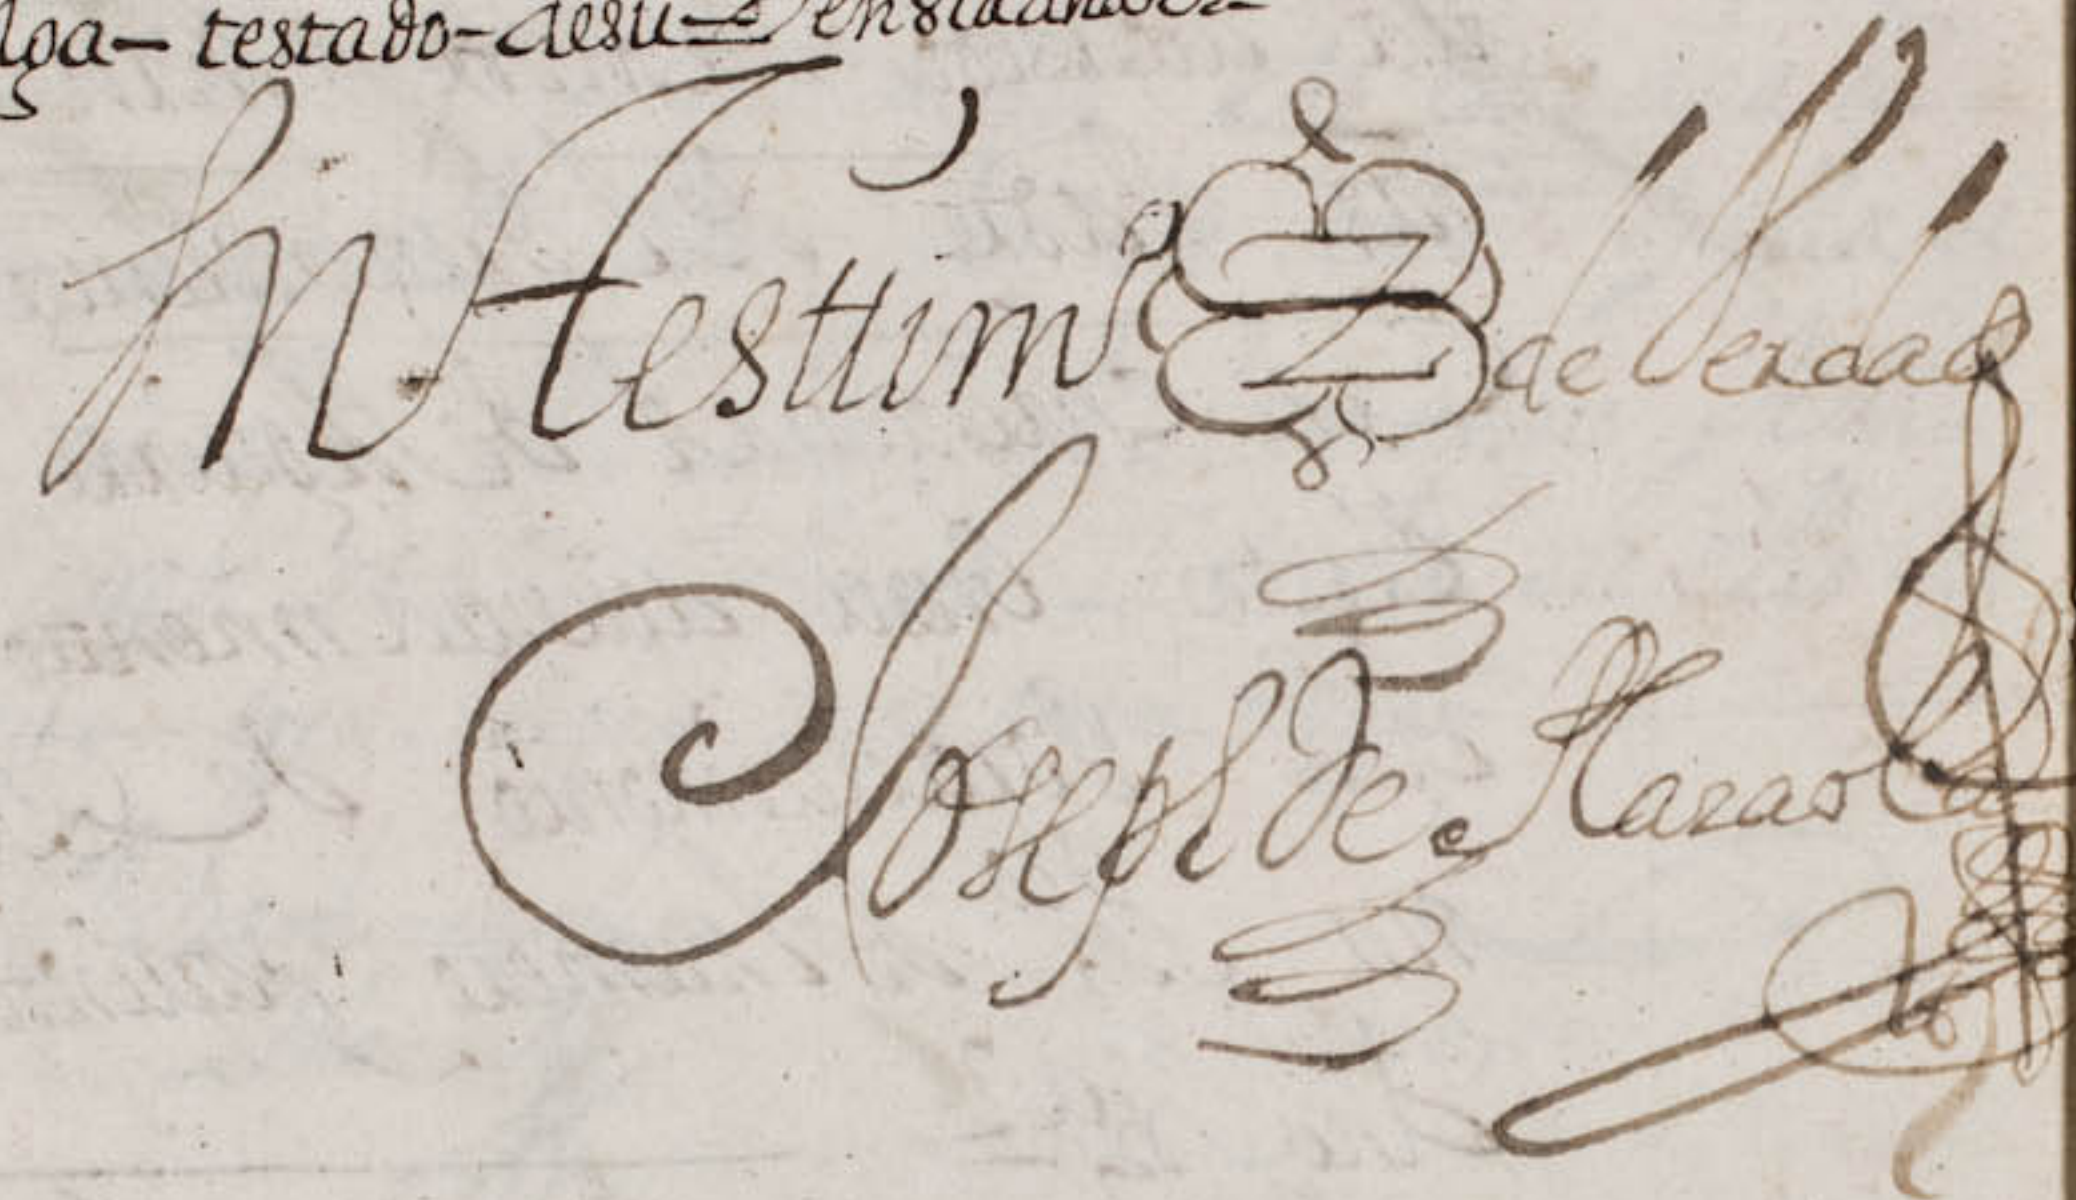 lga - testado - desu
En testtimo de Verdad
Joseph de Narao